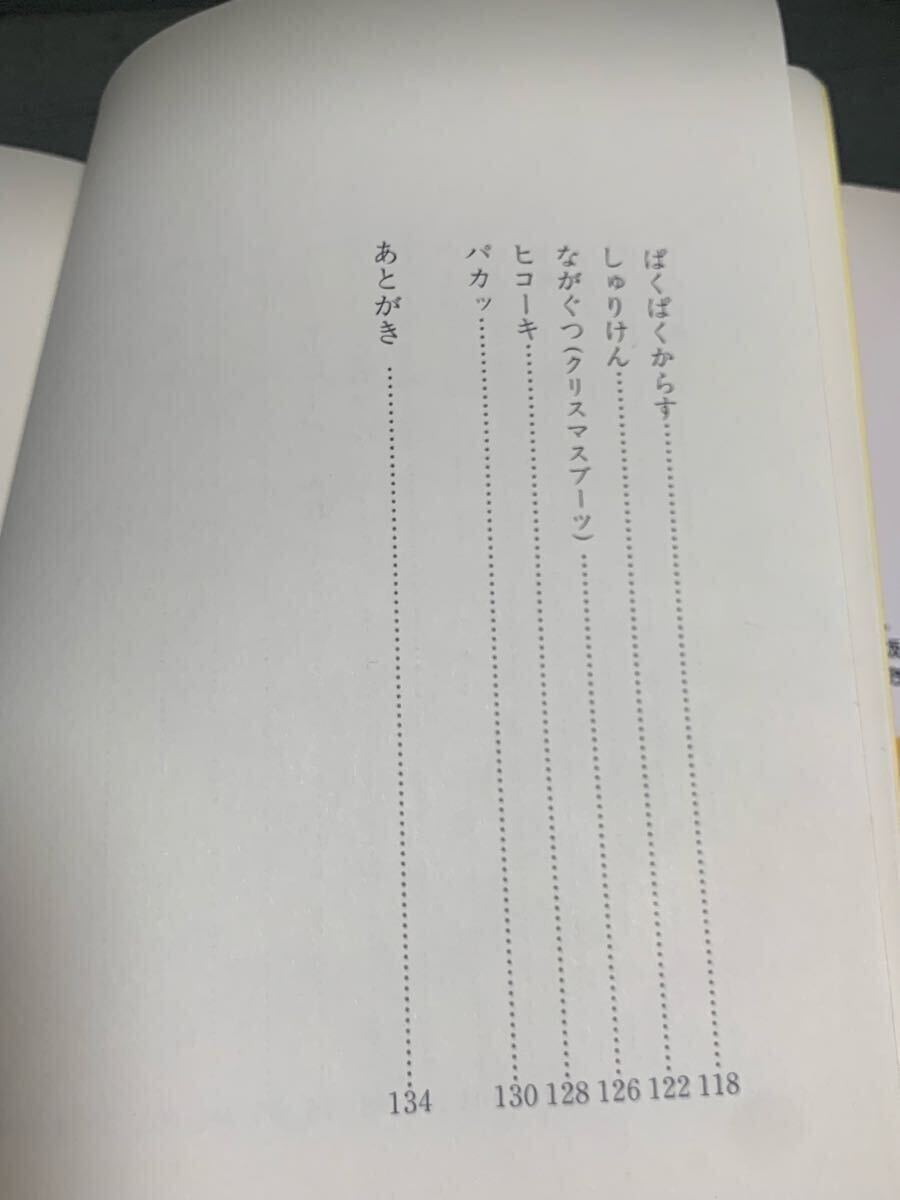 ぱくぱくからす……118
しゅりけん……122
ながぐつ(クリスマスブーツ)……126
ヒコーキ……128
パカッ……130
あとがき……134